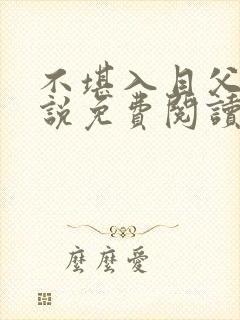 不堪入目父
說免費閱讀
麼麼愛